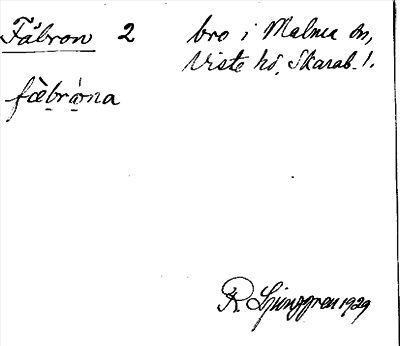 Fäbron 2 bro i Malma sn,
Viste hd, Skarab. l.
fæ̀brȧ́na
R Ljunggren 1929